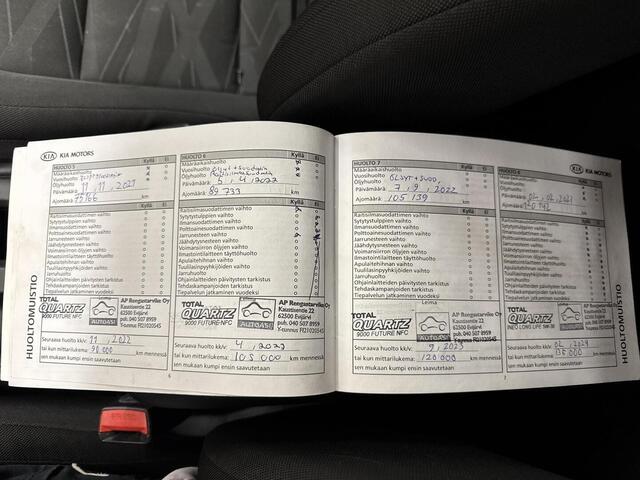 KIA KIA MOTORS
HUOLTOMUISTIO
HUOLTO 5 Kyllä Ei
Määräaikaishuolto
Vuosihuolto
Öljyhuolto
Päivämäärä: 11, 11, 2021
Ajomäärä: km
Raitisilmasuodattimen vaihto
Sytytystulppien vaihto
Ilmansuodattimen vaihto
Polttoainesuodattimen vaihto
Jarrunesteen vaihto
Jäähdytysnesteen vaihto
Voimansiirron öljyjen vaihto
Ilmastointilaitteen täyttöhuolto
Apulaitehihnan vaihto
Tuulilasinpyyhkijöiden vaihto
Jarruhuolto
Ohjainlaitteiden päivitysten tarkistus
Tehdaskampanjoiden tarkistus
Tiepalvelun jatkaminen vuodeksi
TOTAL
QUARTZ
9000 FUTURE NFC
AUTOASI
AP Rengastarvike Oy
Kaustisentie 22
62500 Evijärvi
puh. 040 507 8959
Y-tunnus FI21020545
Seuraava huolto kk/v: 11, 2022
tai kun mittarilukema: 90 000 km mennessä
sen mukaan kumpi ensin saavutetaan
HUOLTO 6 Kyllä Ei
Määräaikaishuolto
Vuosihuolto Öljyt + suodatin
Öljyhuolto
Päivämäärä: 5, 4, 2022
Ajomäärä: 89 733 km
Raitisilmasuodattimen vaihto
Sytytystulppien vaihto
Ilmansuodattimen vaihto
Polttoainesuodattimen vaihto
Jarrunesteen vaihto
Jäähdytysnesteen vaihto
Voimansiirron öljyjen vaihto
Ilmastointilaitteen täyttöhuolto
Apulaitehihnan vaihto
Tuulilasinpyyhkijöiden vaihto
Jarruhuolto
Ohjainlaitteiden päivitysten tarkistus
Tehdaskampanjoiden tarkistus
Tiepalvelun jatkaminen vuodeksi
TOTAL
QUARTZ
9000 FUTURE NFC
AUTOASI
AP Rengastarvike Oy
Kaustisentie 22
62500 Evijärvi
puh. 040 507 8959
Y-tunnus FI21020545
Seuraava huolto kk/v: 4, 2023
tai kun mittarilukema: 105 000 km mennessä
sen mukaan kumpi ensin saavutetaan
6
HUOLTO 7 Kyllä Ei
Määräaikaishuolto
Vuosihuolto ÖLJYT + SUOD,
Öljyhuolto
Päivämäärä: 7, 9, 2022
Ajomäärä: 105 139 km
Raitisilmasuodattimen vaihto
Sytytystulppien vaihto
Ilmansuodattimen vaihto
Polttoainesuodattimen vaihto
Jarrunesteen vaihto
Jäähdytysnesteen vaihto
Voimansiirron öljyjen vaihto
Ilmastointilaitteen täyttöhuolto
Apulaitehihnan vaihto
Tuulilasinpyyhkijöiden vaihto
Jarruhuolto
Ohjainlaitteiden päivitysten tarkistus
Tehdaskampanjoiden tarkistus
Tiepalvelun jatkaminen vuodeksi
Leima
TOTAL
QUARTZ
9000 FUTURE NFC
AUTOASI
AP Rengastarvike Oy
Kaustisentie 22
62500 Evijärvi
puh. 040 507 8959
Y-tunnus FI21020545
Seuraava huolto kk/v: 9, 2023
tai kun mittarilukema: 120 000 km mennessä
sen mukaan kumpi ensin saavutetaan
HUOLTO 8 Kyllä Ei
Määräaikaishuolto
Vuosihuolto
Öljyhuolto
Päivämäärä: 02, 02, 2023
Ajomäärä: km
Raitisilmasuodattimen vaihto
Sytytystulppien vaihto
Ilmansuodattimen vaihto
Polttoainesuodattimen vaihto
Jarrunesteen vaihto
Jäähdytysnesteen vaihto
Voimansiirron öljyjen vaihto
Ilmastointilaitteen täyttöhuolto
Apulaitehihnan vaihto
Tuulilasinpyyhkijöiden vaihto
Jarruhuolto
Ohjainlaitteiden päivitysten tarkistus
Tehdaskampanjoiden tarkistus
Tiepalvelun jatkaminen vuodeksi
TOTAL
QUARTZ
INEO LONG LIFE 5W-30
AUTOASI
AP Rengastarvike Oy
Kaustisentie 22
62500 Evijärvi
puh. 040 507 8959
Y-tunnus FI21020545
Seuraava huolto kk/v: 02, 2024
tai kun mittarilukema: 135 000 km mennessä
sen mukaan kumpi ensin saavutetaan
7
HUOLTOMUISTIO
PRESS